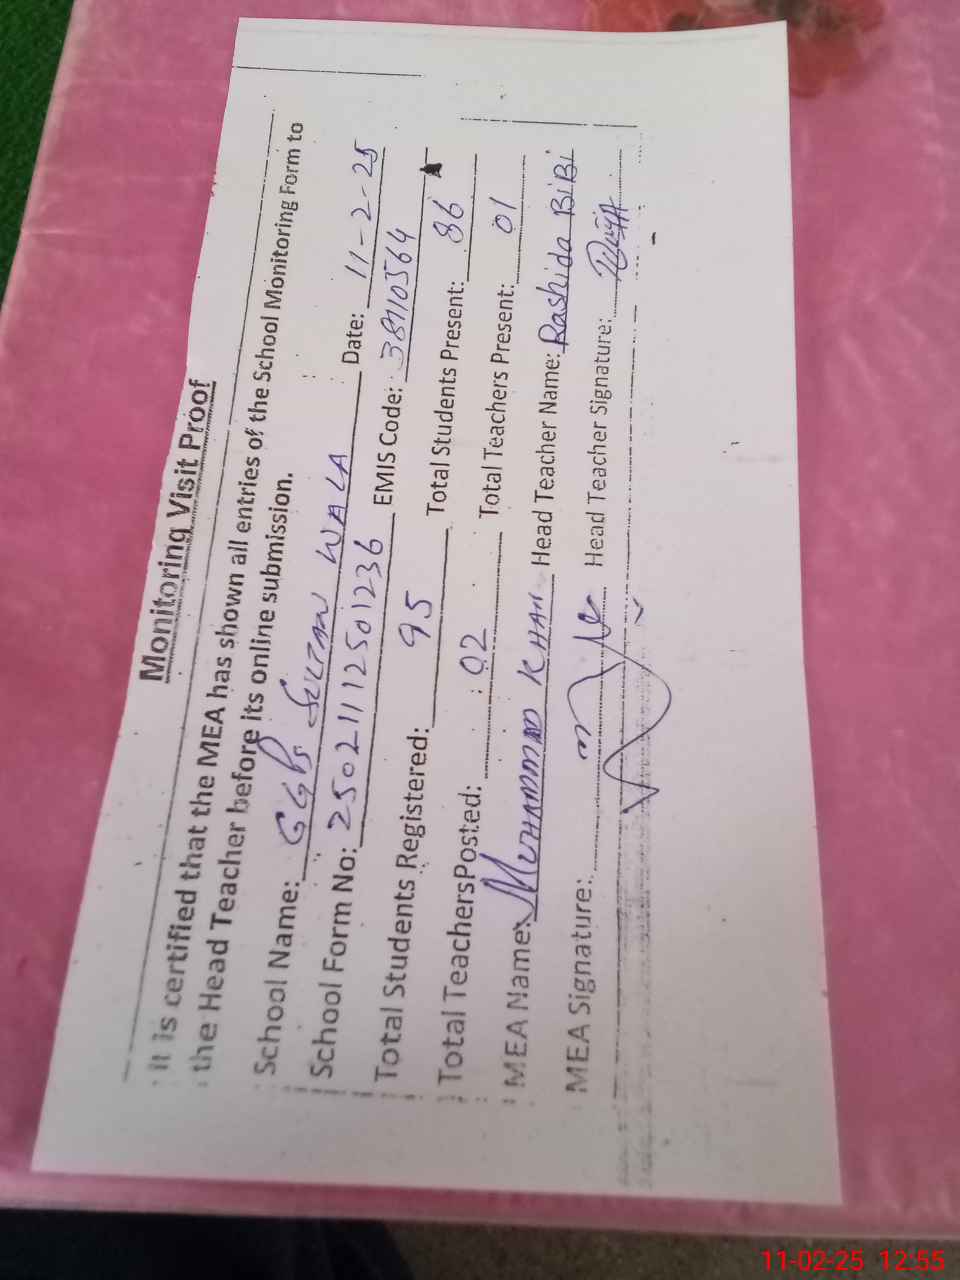 Monitoring Visit Proof
It is certified that the MEA has shown all entries of the School Monitoring Form to
the Head Teacher before its online submission.
School Name: GGPS SULTAN WALA Date: 11-2-25
School Form No: 250211112501236 EMIS Code: 38110564
Total Students Registered: 95 Total Students Present: 86
Total TeachersPosted: 02 Total Teachers Present: 01
MEA Name: MUHAMMAD KHAN Head Teacher Name: Rashida BiBi
MEA Signature: Head Teacher Signature:
11-02-25 12:55